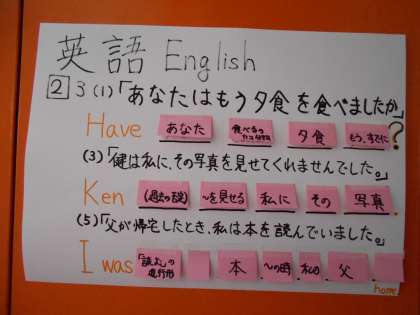 英語 English
2 3(1)「あなたはもう夕食を食べましたか」
Have あなた 食べるの 夕食 もう、すでに ?
(3)「健は私に、その写真を見せてくれませんでした。」
Ken (過去の否定) 〜を見せる 私に その 写真 .
(5)「父が帰宅したとき、私は本を読んでいました。」
I was 「読む」の進行形 本 〜の時 私の 父
home